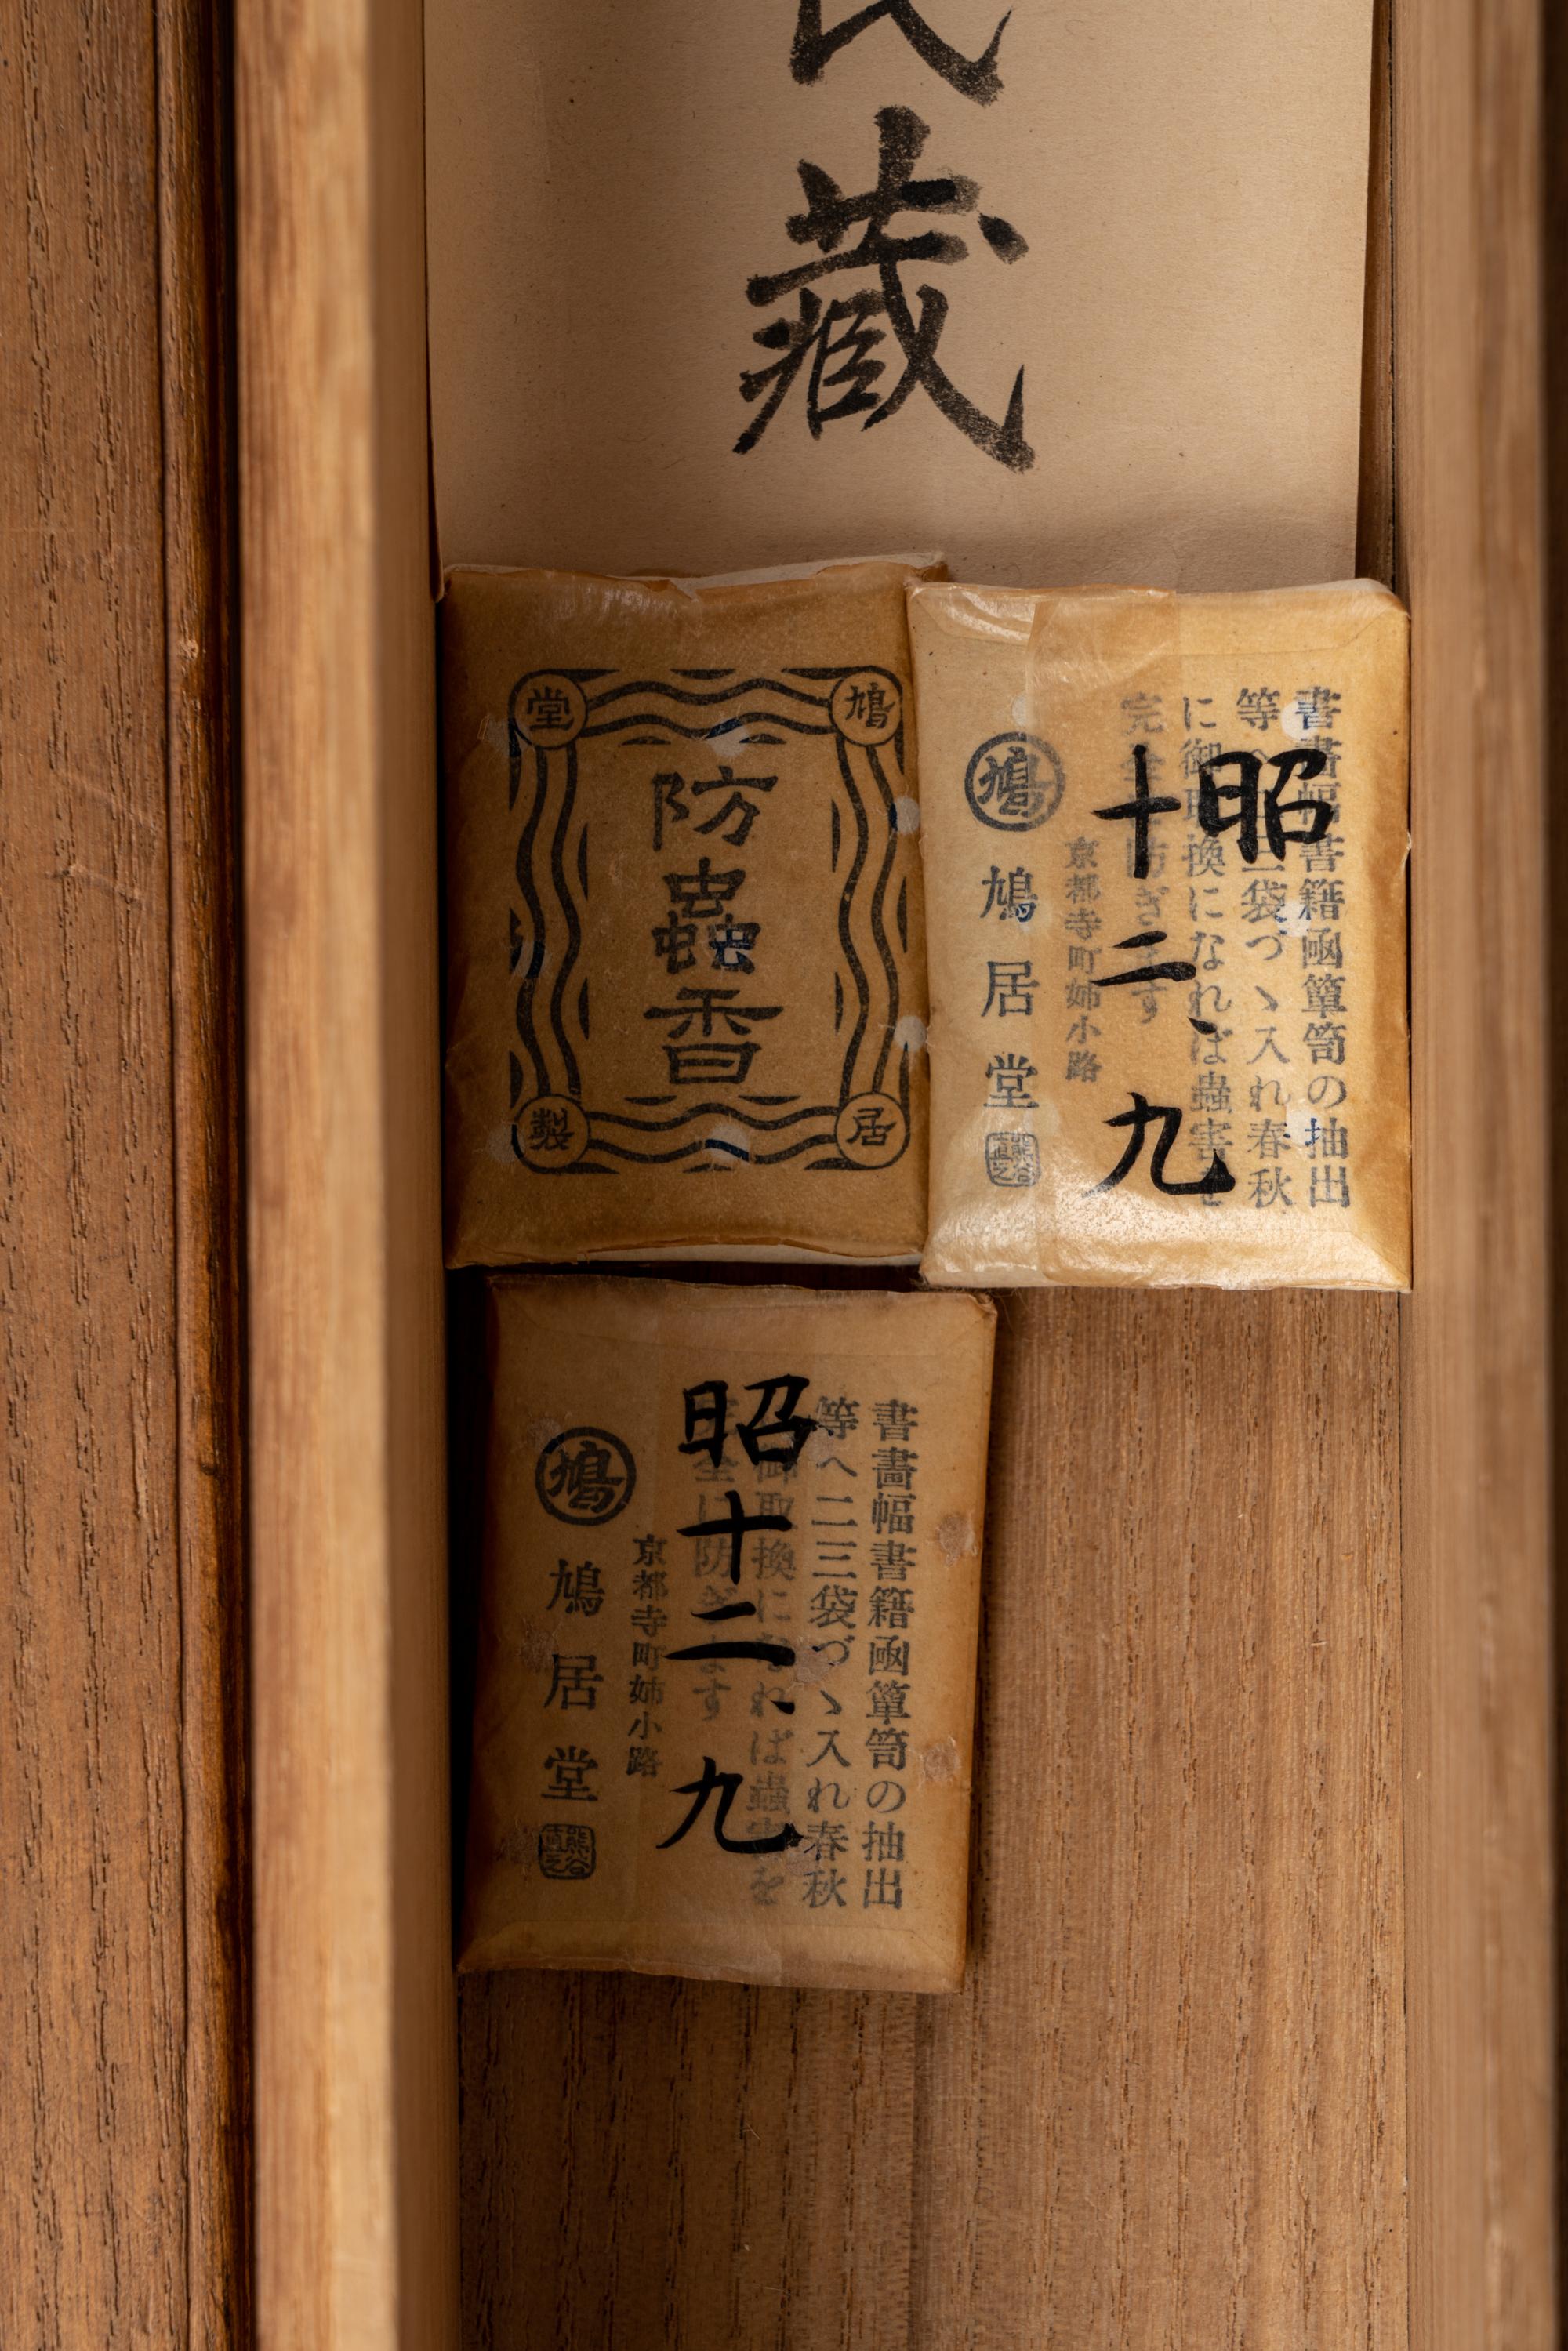 氏
藏
防蟲香
鳩
居
堂
製
書畫幅書籍凾簞笥の抽出
等へ二三袋づゝ入れ春秋
に御取換になれば蟲害を
完全に防ぎます
京都寺町姉小路
鳩
鳩居堂
昭
十二、九
書畫幅書籍凾簞笥の抽出
等へ二三袋づゝ入れ春秋
に御取換になれば蟲害を
完全に防ぎます
京都寺町姉小路
鳩
鳩居堂
昭十二、九